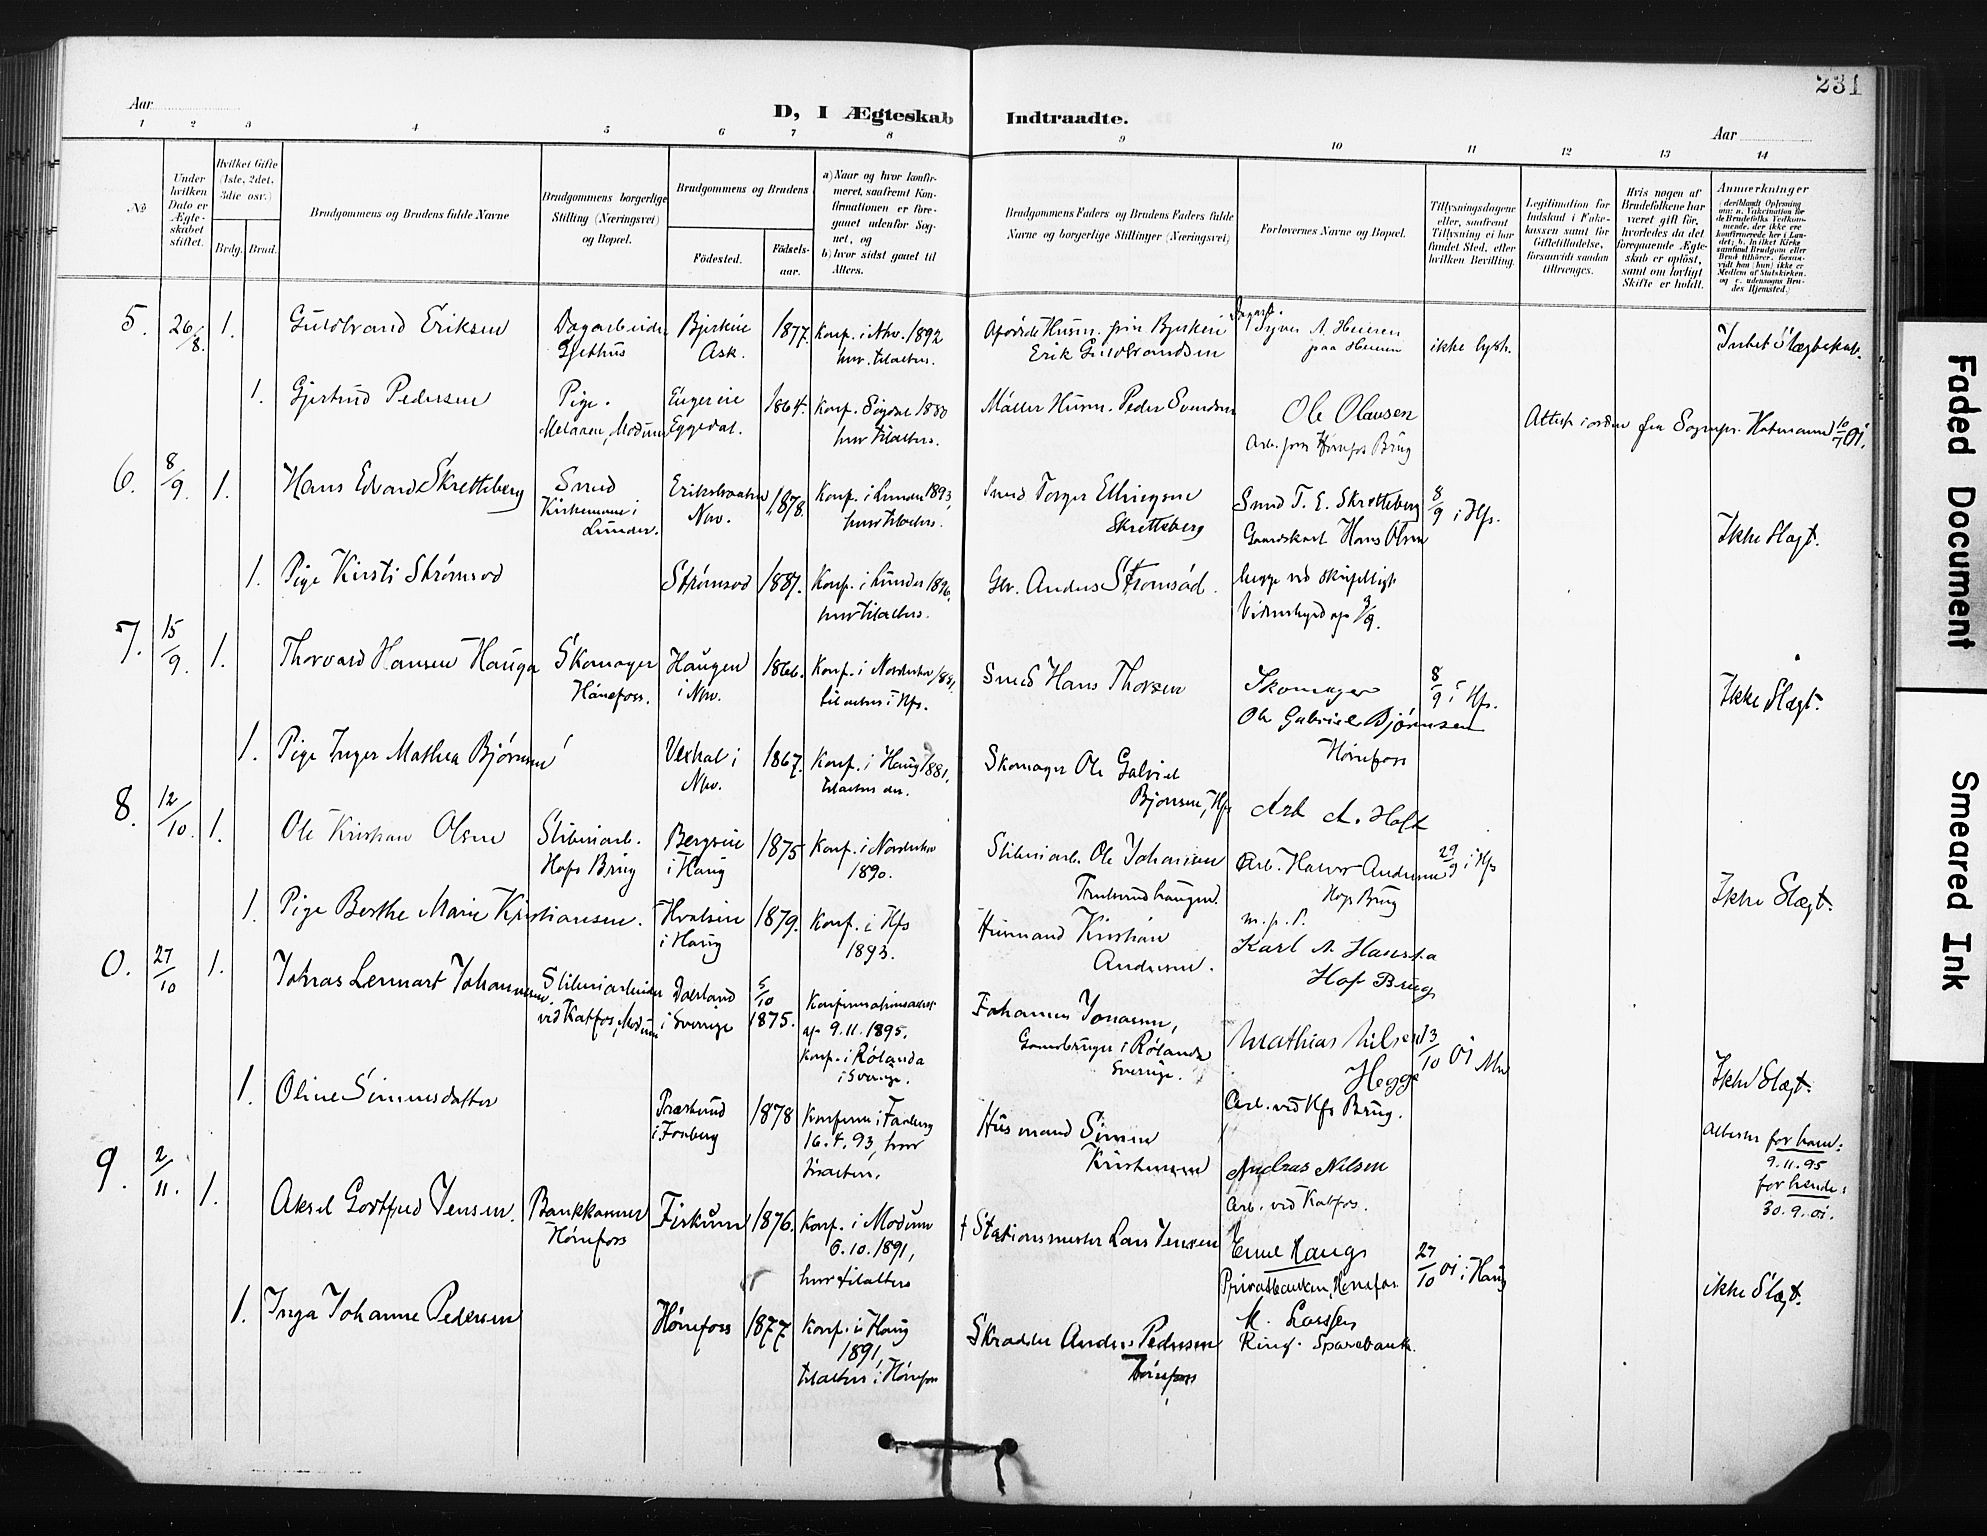 231
Aar
D, I Ægteskab Indtraadte.
Aar
1 2 3 4 5 6 7 8 9 10 11 12 13 14
No
Under hvilken Dato er Ægteskabet stiftet.
Hvilket Gifte (1ste, 2det, 3die osv.)
Brdg. Brud.
Brudgommens og Brudens fulde Navne
Brudgommens borgerlige Stilling (Næringsvei) og Bopæl.
Brudgommens og Brudens
Fødested.
Fødselsaar.
a) Naar og hvor konfirmeret, saafremt Konfirmationen er foregaaet udenfor Sognet, og
b) hvor sidst gaaet til Alters.
Brudgommens Faders og Brudens Faders fulde Navne og borgerlige Stillinger (Næringsvei)
Forlovernes Navne og Bopæl.
Tillysningsdagene eller, saafremt Tillysning ei har fundet Sted, efter hvilken Bevilling.
Legitimation for Indskud i Enkekassen samt for Giftetilladelse, forsaavidt saadan tiltrænges.
Hvis nogen af Brudefolkene har været gift før, hvorledes da det foregaaende Ægteskab er opløst, samt om lovligt Skifte er holdt.
Anmærkninger
5. 26/8. 1. Guldbrand Eriksen
Dagarbeider
Gjethus
Bjerkeie
Ask.
1877.
Konf. i Nhv. 1892
hvor tilalters.
Erik Guldbrandsen
ikke lyst.
Intet Slægtskab.
1. Gjertrud Pedersen
Pige.
Melaaen, Modum
Eggedal.
1864.
Konf. Sigdal 1880
hvor tilalters.
Møller Husm. Peder Svendsen
Ole Olausen
Attest i orden fra Sognepr. Hotmann 10/7 01.
6. 8/9. 1. Hans Edvard Skretteberg
Smed
Kirkemoen i
Lunder.
Nov.
1878.
Konf. i Lunder 1893,
hvor tilalters.
Smed Torger Ellingsen
Skretteberg
Smed T. E. Skretteberg
Gaardskarl Hans Olsen
8/9 i Hfs.
Ikke Slægt.
1. Pige Kirsti Strømsod
Strømsod
1881.
Konf. i Lunder 1896.
hvor tilalters.
Gbr. Anders Strømsod.
begge ved skriftligt
Vidnesbyrd af 3/9.
7. 15/9. 1. Thorvard Hansen Haugen
Skomager
Hønefoss.
Haugen
i Nov.
1866.
Konf. i Norderhov 1881.
tilalters i Hfs.
Smed Hans Thorsen
Skomager
Ole Gabriel Bjørnsen
Hønefoss
8/9 i Hfs.
Ikke Slægt.
1. Pige Inger Mathea Bjørnsen
Veshal i
Nov.
1867.
Konf. i Haug 1881.
tilalters der.
Skomager Ole Gabriel
Bjørnsen, Hfs
8. 12/10. 1. Ole Kristian Olsen
Sliberiarb.
Hofs Brug
Bergseie
i Haug
1875
Konf. i Norderhov
1890.
Sliberiarb. Ole Johansen
Arb A. Holt
Arb. Halvor Andersen
Hofs Brug
29/9 i Hfs
Ikke Slægt.
1. Pige Berthe Marie Kristiansen.
Hvalseie
i Haug
1879.
Konf. i Hfs
1893.
Husmand Kristian
Andersen.
m. p. P.
Karl A. Hansen
Hofs Brug
0. 27/10 1. Johas Lennart Johannesen
Sliberiarbeider
ved Katfos, Modum
Dalsland
i Sverige
5/10
1875.
Konfirmationsattest
af 9.11.1895.
Konf. i Rølanda
i Sverige.
Johannes Jonassen,
Gaardbruger i Rølanda
Sverige.
Mathias Nilsen
Hegge
Arb. ved Hfs Brug.
13/10 01 Nhv
Ikke Slægt.
1. Oline Simensdatter
Præstrud
i Faaberg
1878
Konfirm i Faaberg
16.4.93, hvor
tilalters.
Husmand Simen
Kristensen
Andreas Nilsen
Arb. ved Katfos.
Attester for ham:
9.11.95
for hende:
30.9.01.
9. 2/11. 1. Aksel Gottfred Jensen.
Bankkasserer
Hønefoss
Fiskum
1876.
Konf. i Modum
6.10.1891,
hvor tilalters
† Stationsmester Lars Jensen
Emil Haugs
Privatbanken, Hønefos.
27/10 01 i Haug
ikke Slægt.
1. Inga Johanne Pedersen
Hønefoss
1877
Konf. i Haug
1891,
tilalters i Hønefoss
Skrædder Anders Pedersen
Hønefoss
K. Larssen
Ring. Sparebank.
Faded Document
Smeared Ink